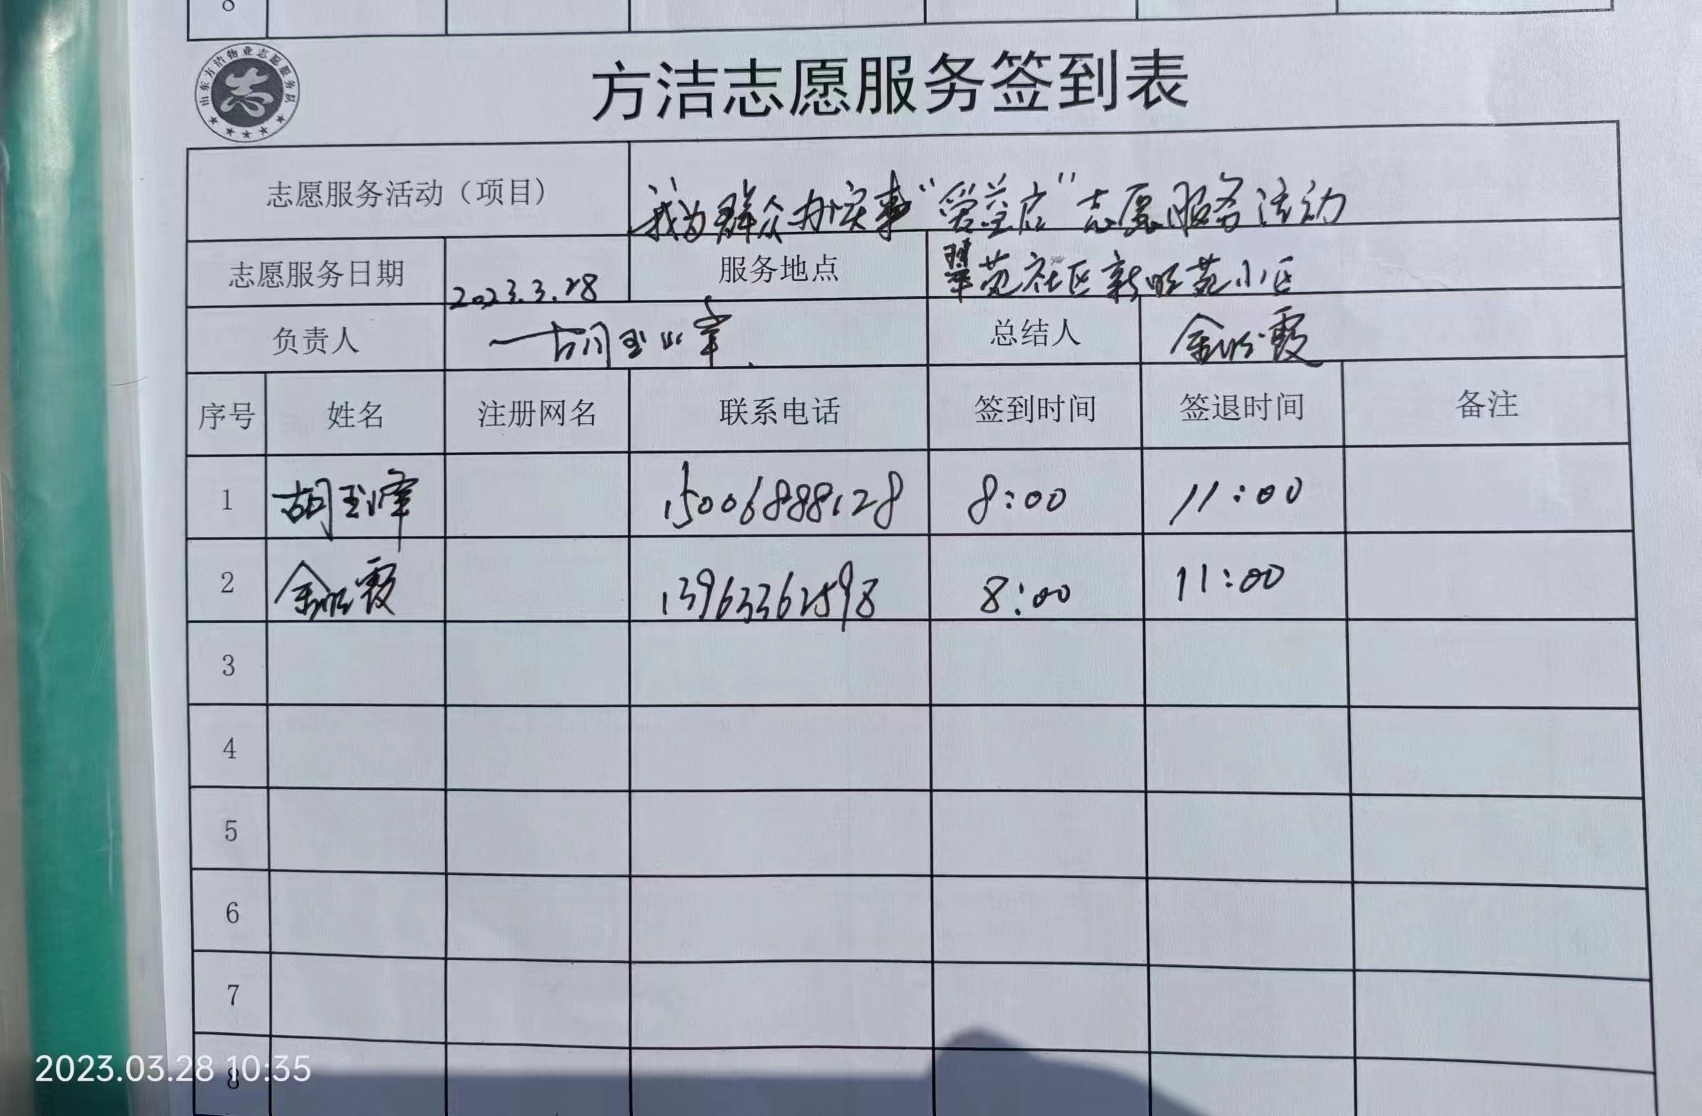 8
山东方洁物业志愿服务队
志
方洁志愿服务签到表
志愿服务活动（项目） 我为群众办实事“ ”志愿服务活动
志愿服务日期 2023.3.28 服务地点 翠苑社区新旺苑小区
负责人 胡玉峰 总结人 金 霞
序号 姓名 注册网名 联系电话 签到时间 签退时间 备注
1 胡玉峰 15006888128 8:00 11:00
2 金 霞 13963362598 8:00 11:00
3
4
5
6
7
8
2023.03.28 10:35